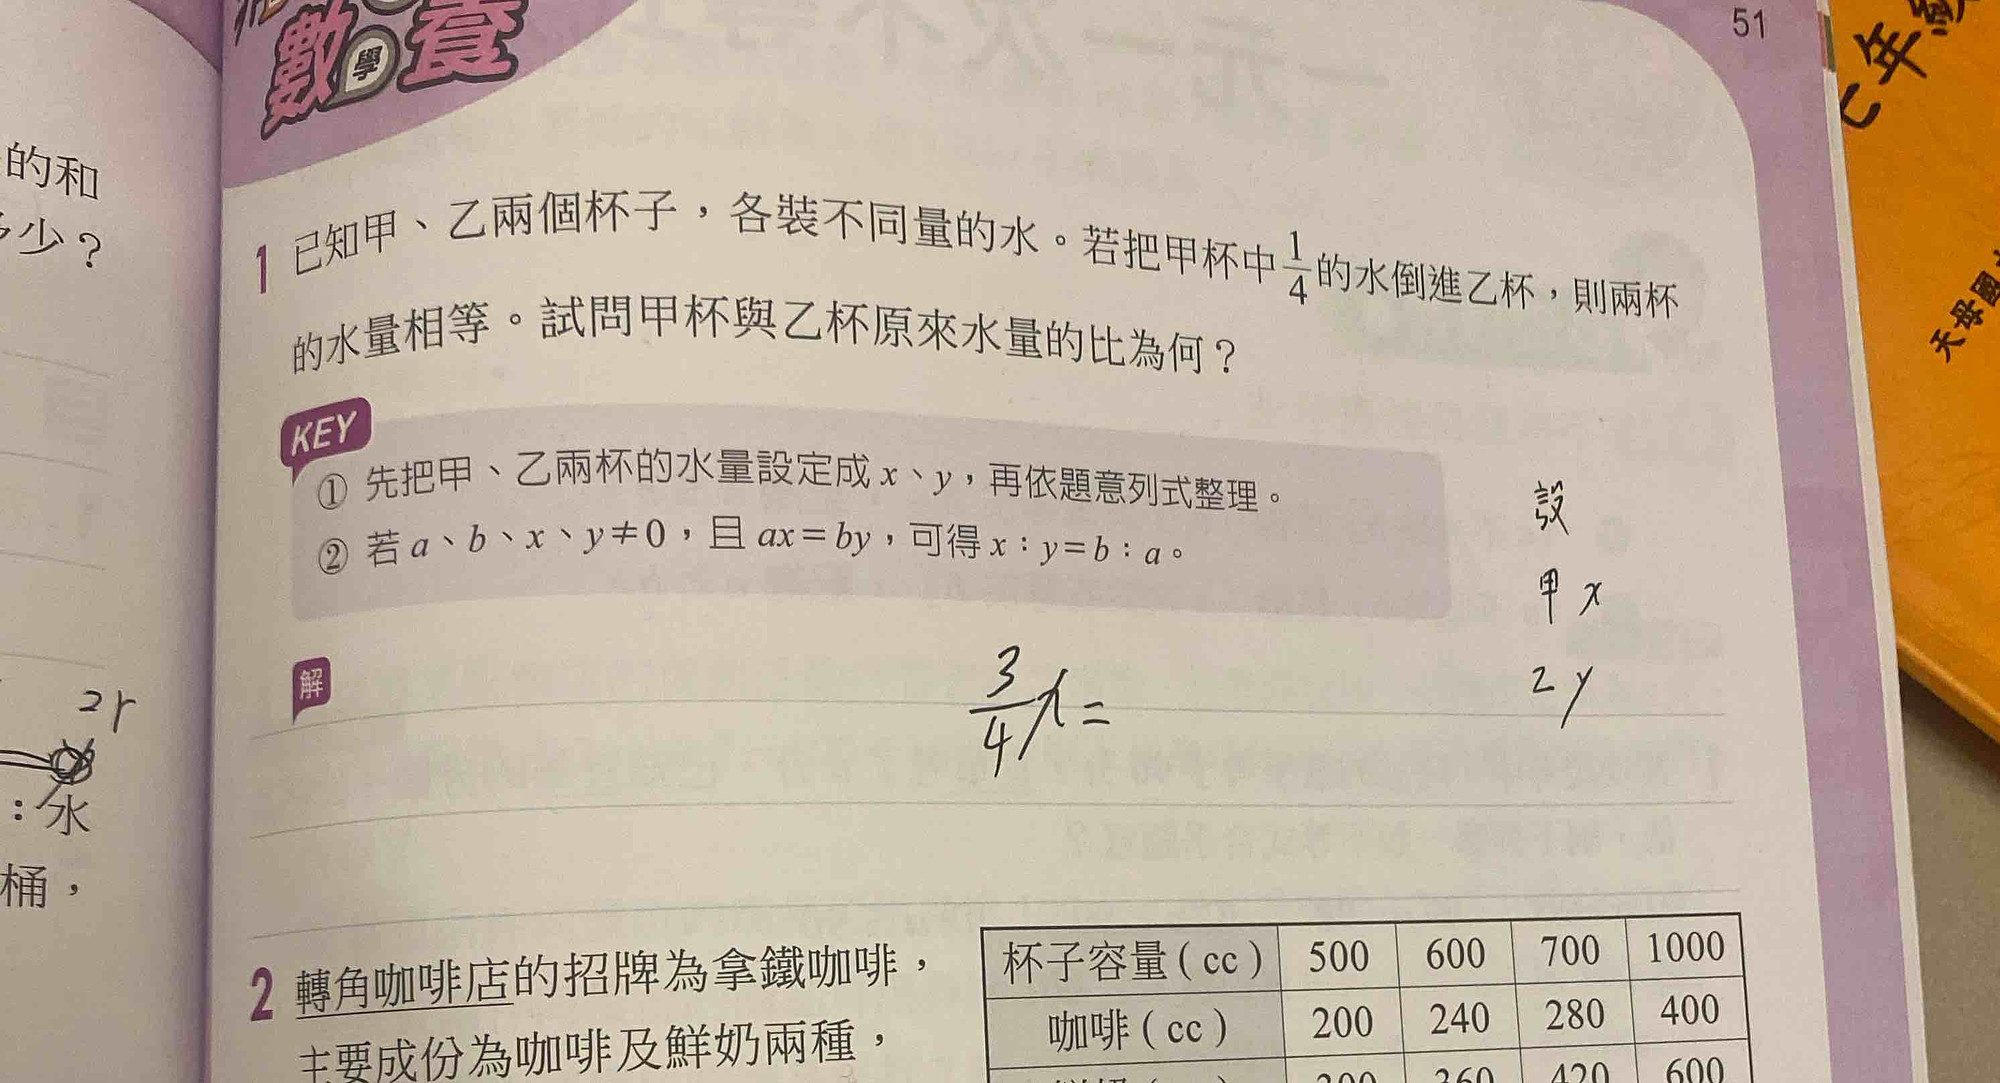 的和
少？
2r
：水
桶，
數學養
51
七年級
天母國
1 已知甲、乙兩個杯子，各裝不同量的水。若把甲杯中1/4的水倒進乙杯，則兩杯
的水量相等。試問甲杯與乙杯原來水量的比為何？
KEY
① 先把甲、乙兩杯的水量設定成 x、y，再依題意列式整理。
② 若 a、b、x、y≠0，且 ax=by，可得 x：y=b：a。
設
甲 x
乙 y
解
3/4 x =
2 轉角咖啡店的招牌為拿鐵咖啡，
主要成份為咖啡及鮮奶兩種，
杯子容量（cc） 500 600 700 1000
咖啡（cc） 200 240 280 400
360 420 600